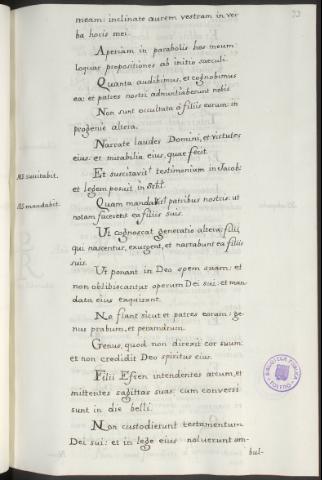 33
meam: inclinate aurem vestram in ver
ba horis mei.
Aperiam in parabolis hos meum
loquar propositiones ab initio saeculi.
Quanta audibimus, et cognobimus
ea: et patres nostri adnuntiaberunt nobis
Non sunt occultata à filiis eorum: in
progenie altera.
Narrate laudes Domini, et virtutes
eius: et mirabilia eius, quae fecit.
AB. suscitabit.
Et suscitavit testimonium in Jacob:
et legem posuit in
AB. mandabit.
Quam mandabit patribus nostris: ut
notam facerent ea filiis suis.
Ut cognoscat generatio altera: filii,
qui nascentur, exurgent, et narrabunt ea filiis
suis.
Ut ponant in Deo spem suam: et
non obliviscantur operum Dei sui: et man
data eius exquirant.
Ne fiant sicut et patres eorum: ge
nus prabum, et peramarum.
Genus, quod non direxit cor suum:
et non credidit Deo spiritus eius.
Filii Efren intendentes arcum, et
mittentes sagittas suas: cum conversi
sunt in die belli.
Non custodierunt testamentum
Dei sui: et in lege eius noluerunt am-
bul-
BIBLIOTECA PUBLICA
TOLEDO